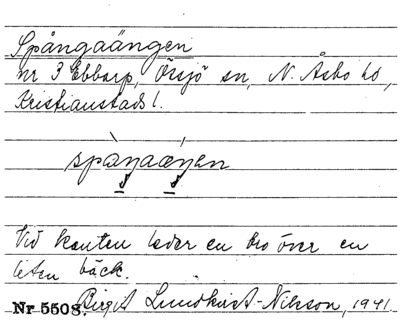 Spångaängen
nr 3 Ebbarp, Örsjö sn, N. Åsbo hd,
Kristianstads l.
spàŋaæ̀ŋen
Vid kanten leder en bro över en
liten bäck.
Nr 5508. Birgit Lundkvist-Nilsson, 1941.